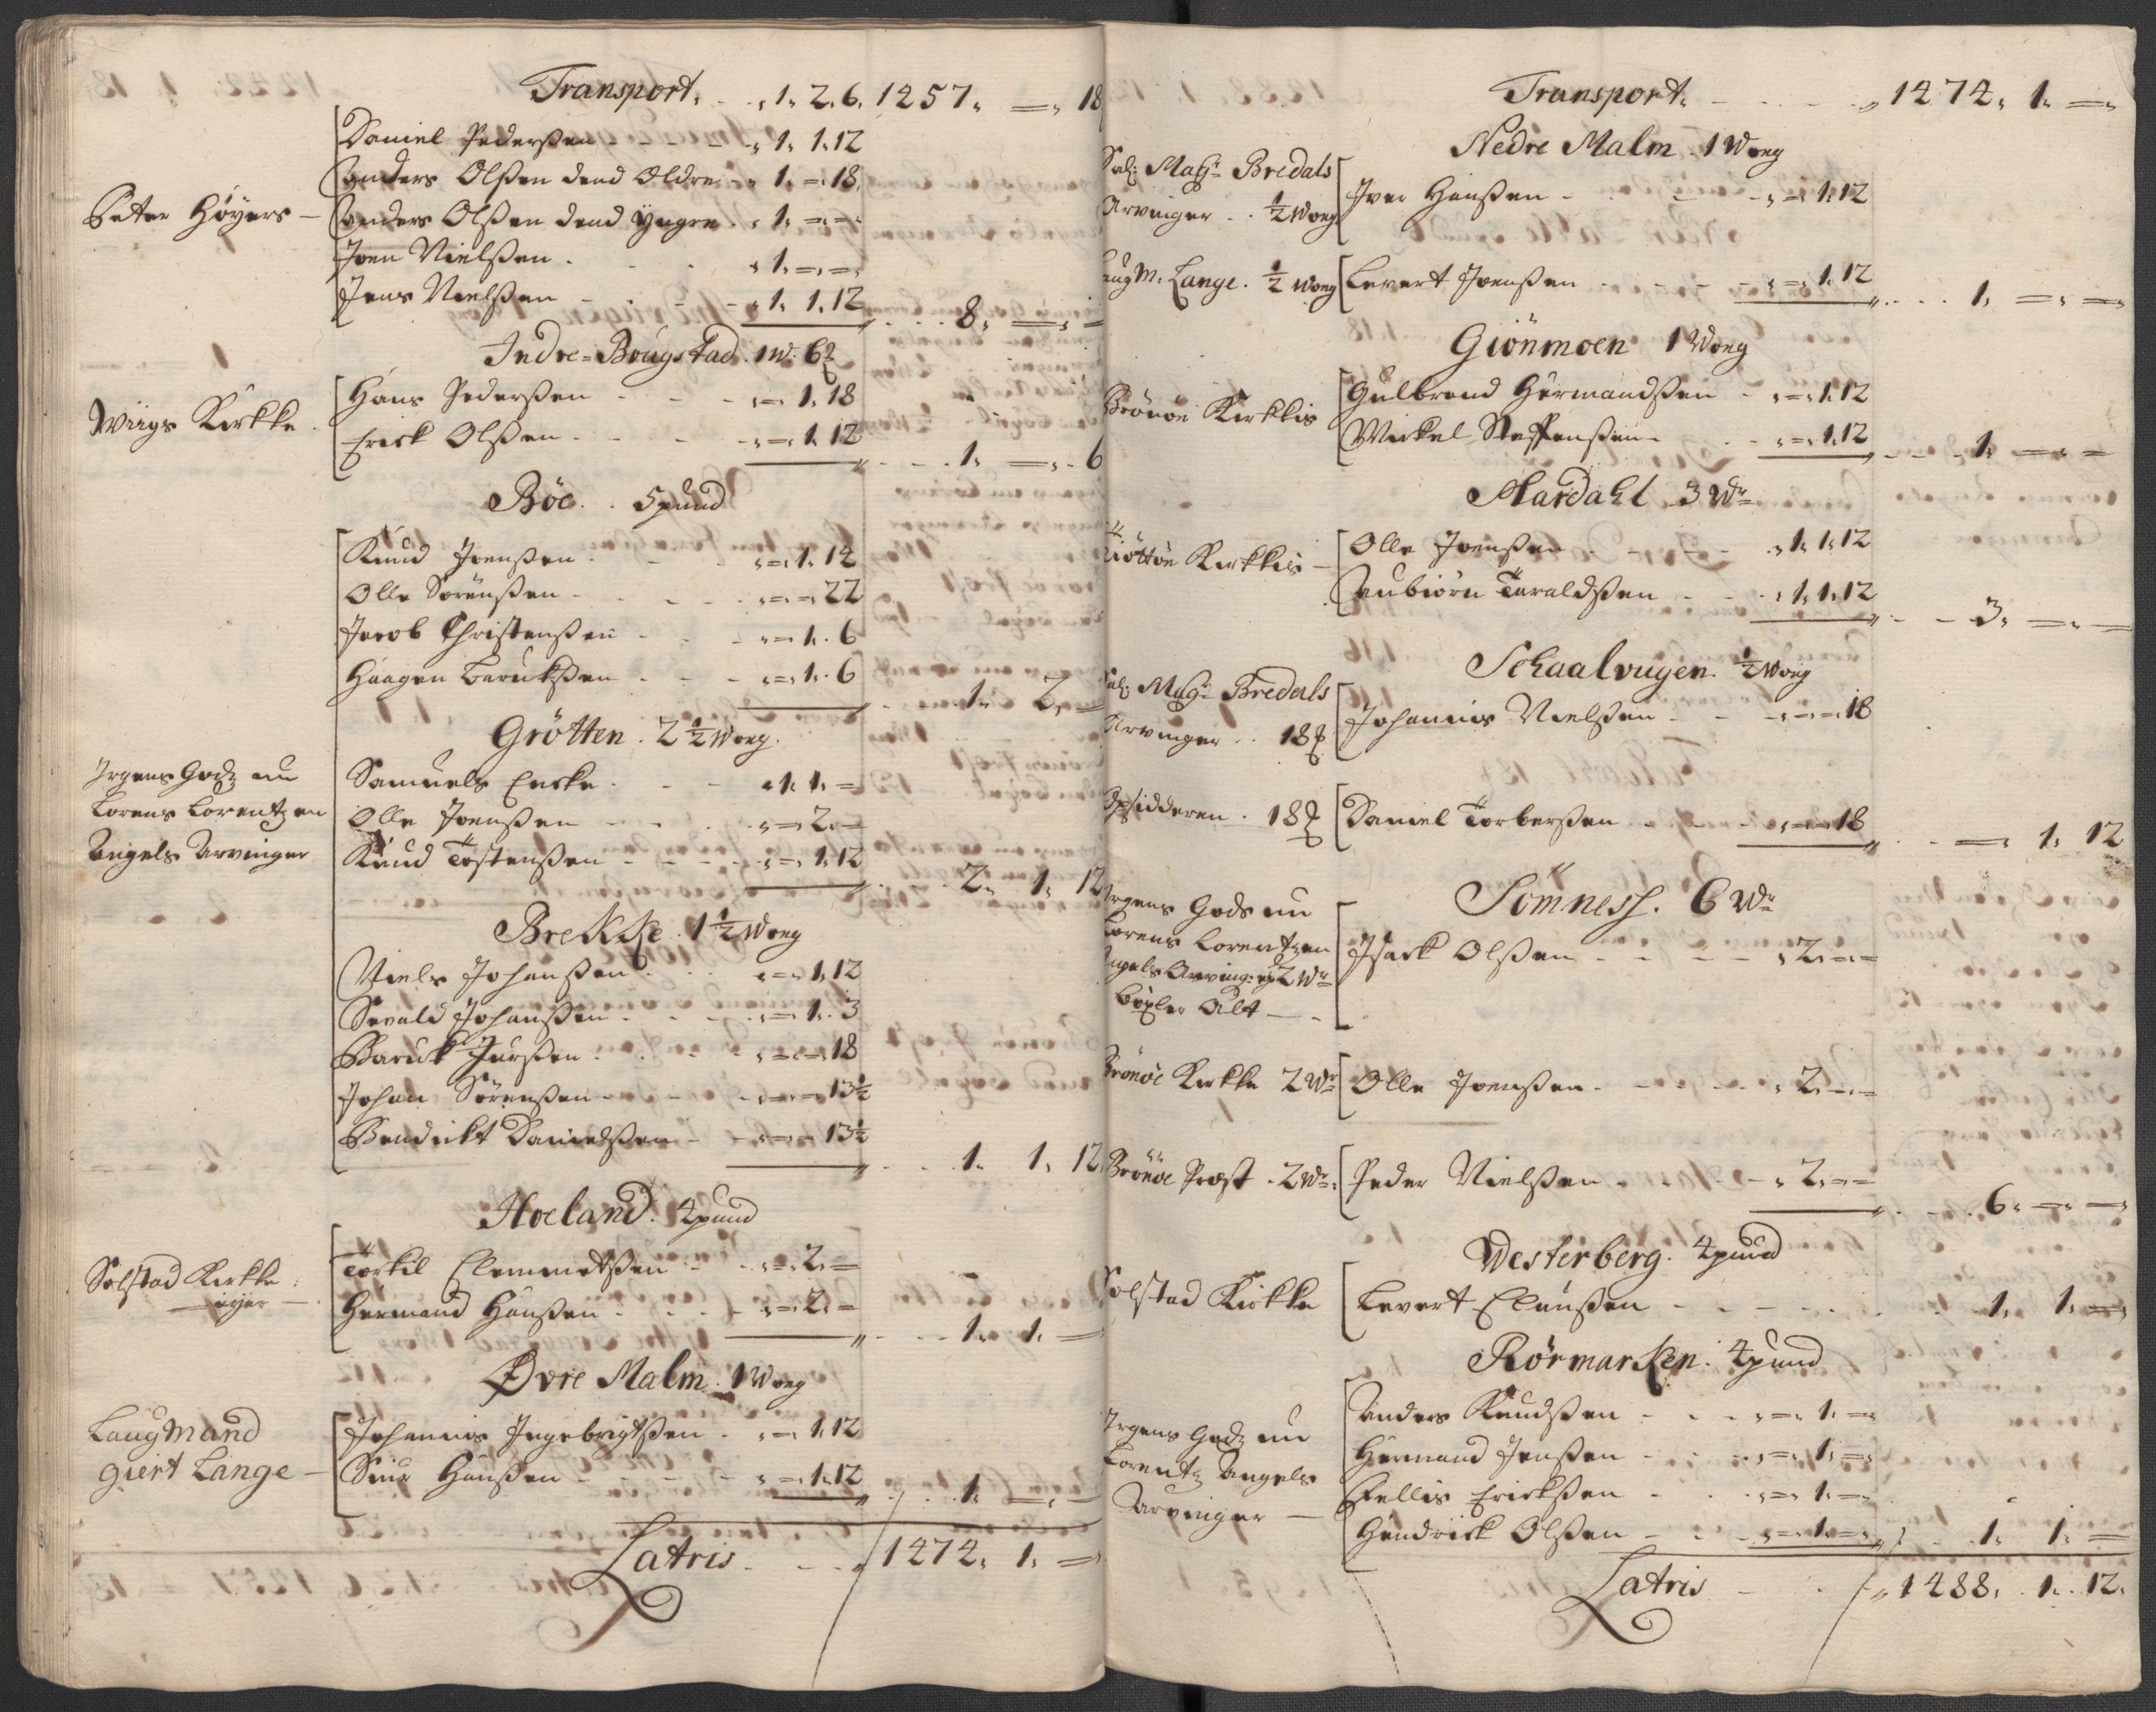 Transport. - - „ 1. 2. 6. 1457. =. 18
Daniel Pederßen - - - - „ 1. 1. 12
Anders Olßen dend Eldre - „ 1. =. 18.
Peter Høyers — Anders Olßen dend yngre „ 1. =. =.
Joen Nielßen - - - „ 1. =. =.
Jens Nielßen - - - - „ 1. 1. 12 - - 8. =. =
Indre-Brugstad. 1 W. 6
Wiigs Kirkke. Hans Pederßen - - - „ =. 1. 18
Erick Olßen - - - „ =. 1. 12 - - - 1. =. 6
Böe. 5 pund
Knud Joenßen - - - „ =. 1. 14
Olle Sörenßen - - - „ =. =. 22
Jacob Christenßen - - - „ =. 1. 6
Haagen Barukßen - - - „ =. 1. 6 - - 1. 2. =
Grötten. 2 ½ Woeg.
Irgens Godz nu
Lorens Lorentzen
Angels Arvinger
Samuels Encke - - - „ 1. 1. =
Olle Joenßen - - - „ =. 2. =
Knud Tostenßen - - - - „ =. 1. 12 - - 2. 1. 12
Brekke. 1 ½ Woeg
Niels Johanßen - - - „ =. 1. 12
Sevald Johanßen - - - - „ =. 1. 3
Baruk Jurßen - - - „ =. =. 18
Johan Sörenßen - - - „ =. =. 13½
Bendickt Danielßen - - „ =. =. 13½ - - 1. 1. 12
Hoeland. 4 pund
Solstad Kirkke
eyer —
Torkil Clemmetßen - - „ =. 2. =
Hermand Hanßen - - - „ =. 2. = - - - 1. 1. =
Øvre Malm. 1 Woeg
Laugmand
giert Lange —
Johannis Ingebrigtßen - „ =. 1. 12
Siur Hanßen - - - - „ =. 1. 12 - - 1. =. =
Latris - - - 1474. 1. =
Transport. - - - - „ 1474. 1. =
Nedre Malm. 1 Woeg
Sal: Magr Bredals
Arvinger. ½ Woeg
Iver Hanßen - - - - „ =. 1. 12
Laug M. Lange. ½ Woeg Levert Joenßen - - - - „ =. 1. 12 - - - 1. =. =
Giönmoen 1 Woeg
Brönöe Kirkkis
Gulbrand Hermandßen - „ =. 1. 12
Mickel Steffenßen - - „ =. 1. 12 - - - 1. =. =
Aardahl 3 Wr
Tiöttöe Kirkkis —
Olle Joenßen - - - - „ 1. 1. 12
Aubiörn Taraldßen - - „ 1. 1. 12 - - 3. =. =
Schaalvugen. ½ Woeg
Sal: Magr Bredals
Arvinger. 18
Johannis Nielßen - - „ =. =. 18
Opsidderen. 18 Daniel Torberßen - - - „ =. =. 18 - - =. 1. 12
Sömness. 6 Wr
Irgens Gods nu
Lorens Lorentzen
Angels Arving: ej 2 Wr
böxler Alt — -
Isack Olßen - - - - „ 2. =. =
Brönöe Kirkke 2 Wr Olle Joenßen - - - - „ 2. =. =
Brönöe Præst. 2 Wr. Peder Nielßen - - - „ 2. =. = - - 6. =. =
Westerberg. 4 pund
Solstad Kirkke Levert Claußen - - - - - 1. 1. =
Rörmarken. 4 pund
Irgens Godz nu
Lorentz Angels
Arvinger —
Anders Knudßen - - - „ =. 1. =
Hermand Jenßen - - - „ =. 1. =
Ellis Erickßen - - - „ =. 1. =
Hendrick Olßen - - - „ =. 1. = - - 1. 1. =
Latris - - - „ 1488. 1. 12.